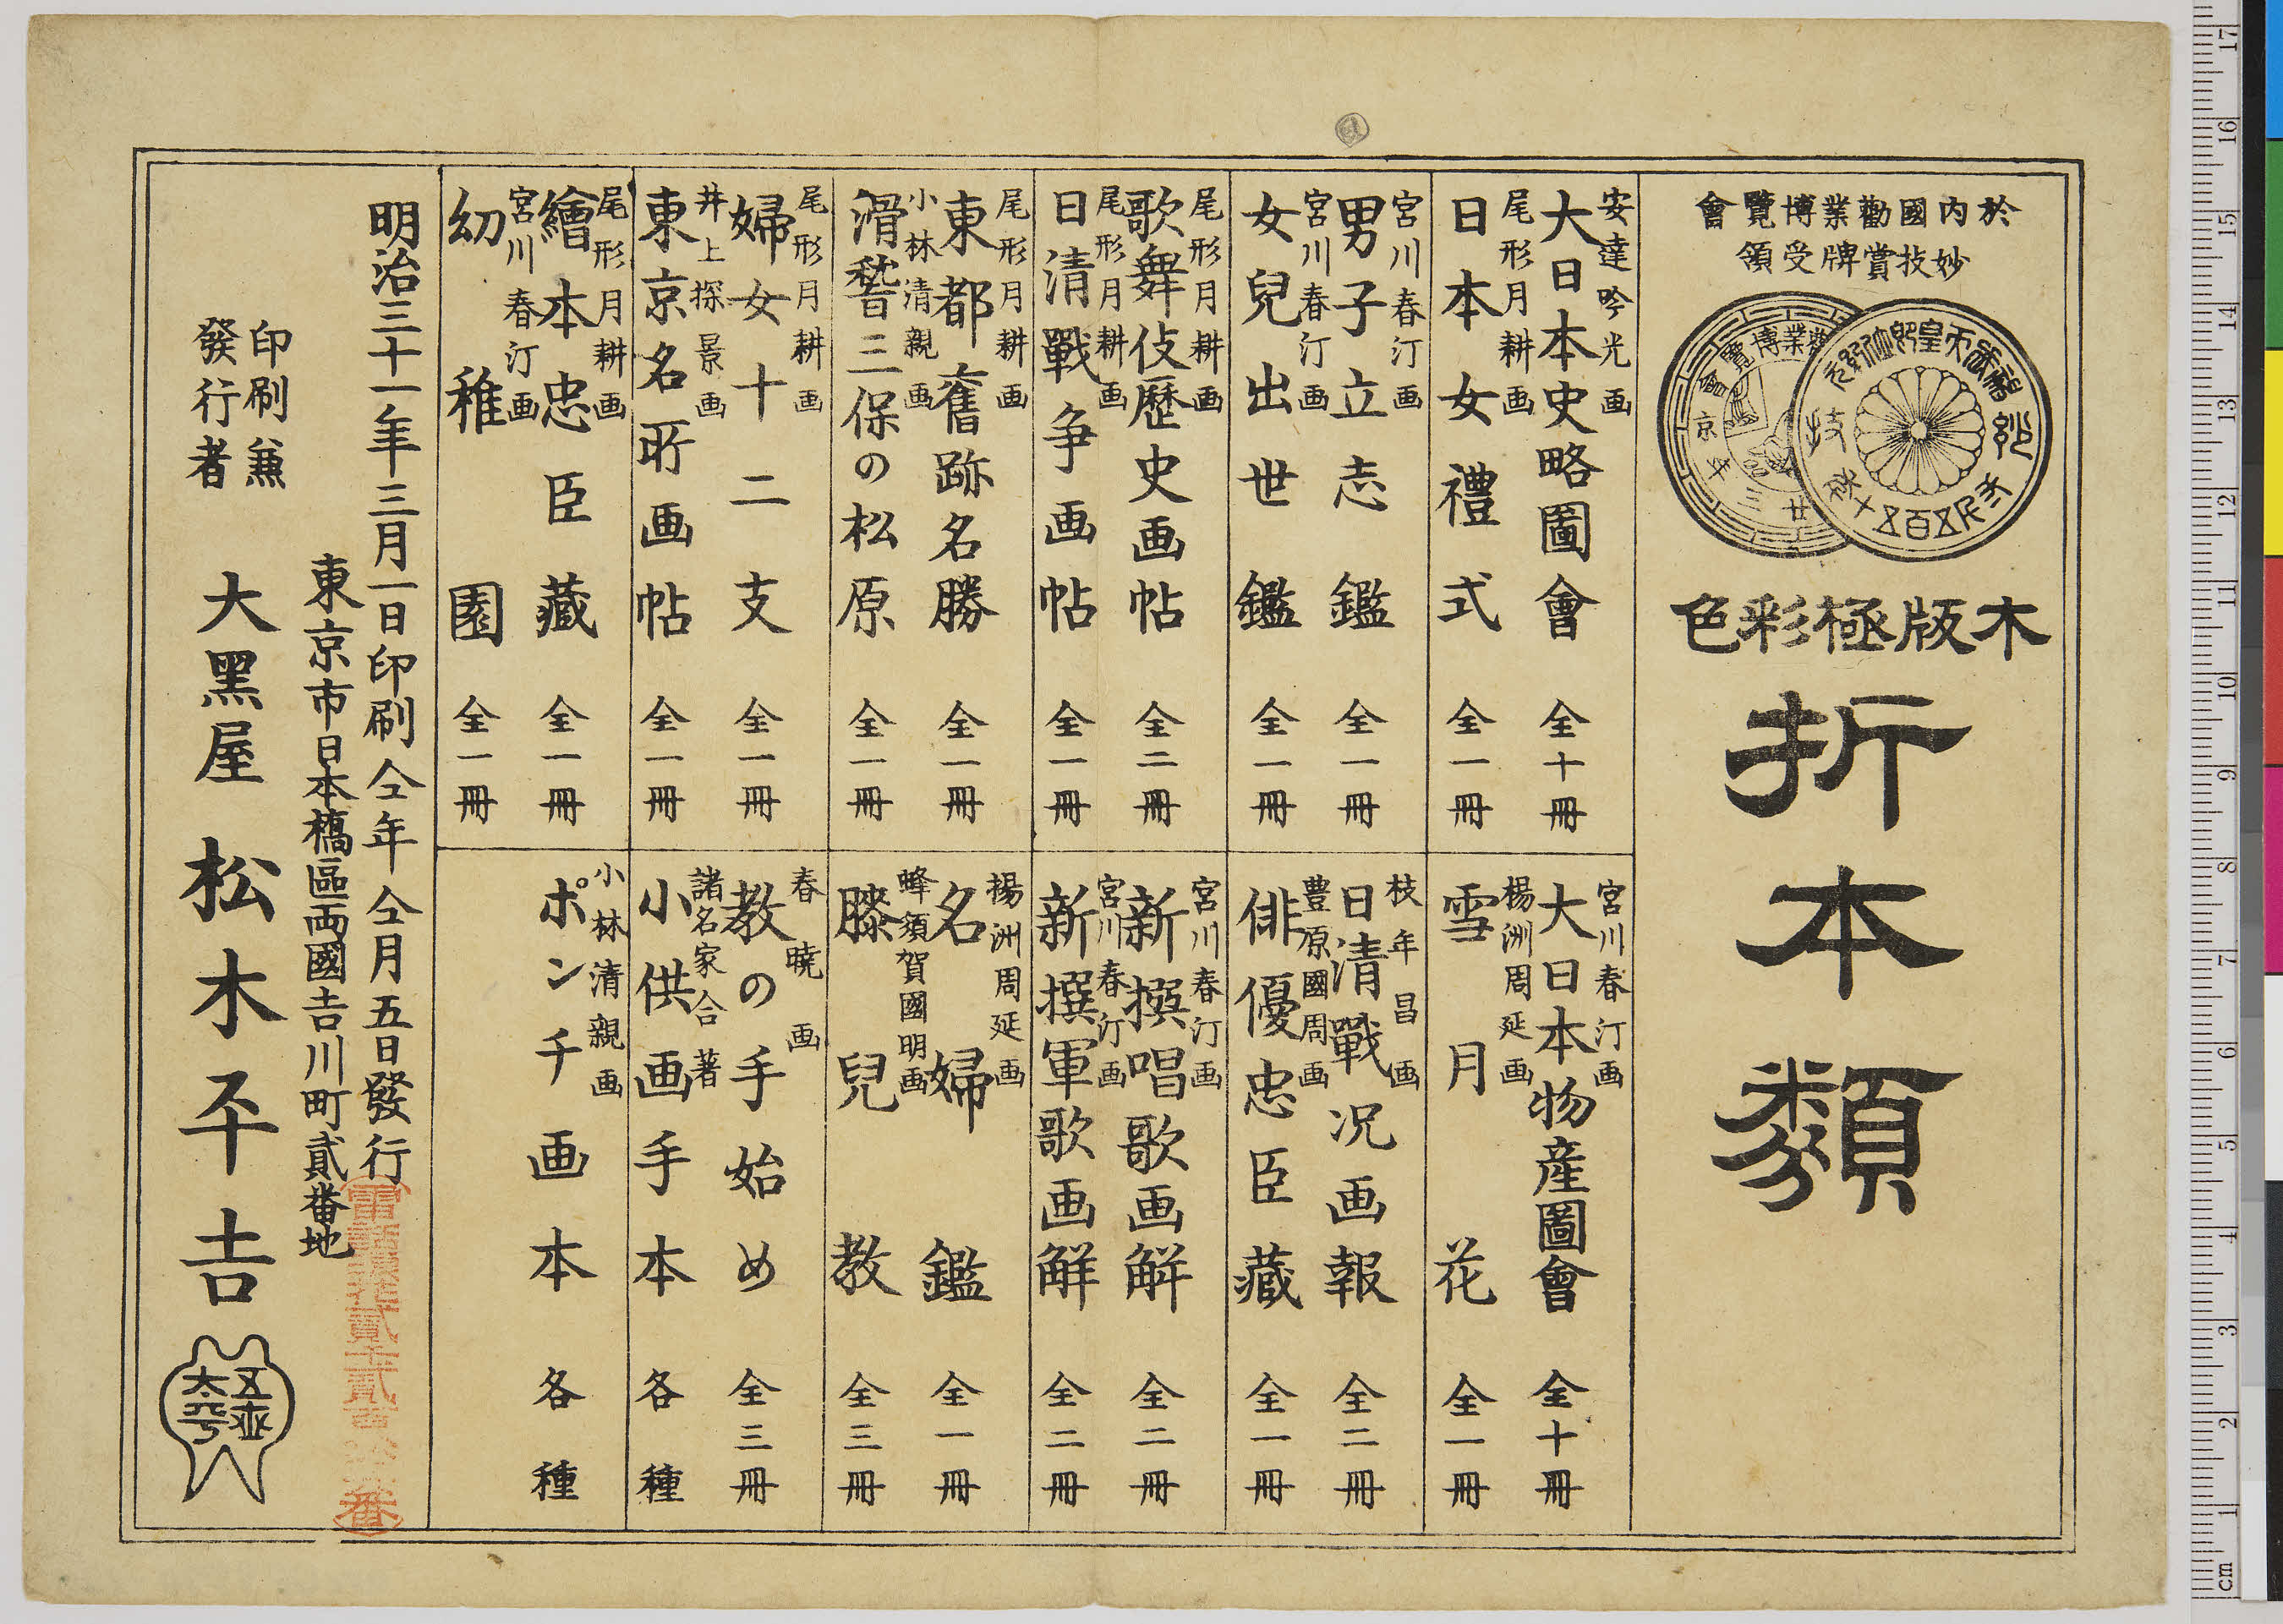 於内國勸業博覽會
妙技賞牌受領
木版極彩色
折本類
安達吟光画
大日本史略圖會 全十冊
尾形月耕画
日本女禮式 全一冊
宮川春汀画
男子立志鑑 全一冊
宮川春汀画
女兒出世鑑 全一冊
尾形月耕画
歌舞伎歴史画帖 全二冊
尾形月耕画
日清戰争画帖 全一冊
尾形月耕画
東都舊跡名勝 全一冊
小林清親画
滑稽三保の松原 全一冊
尾形月耕画
婦女十二支 全一冊
井上探景画
東京名所画帖 全一冊
尾形月耕画
繪本忠臣藏 全一冊
宮川春汀画
幼稚園 全一冊
宮川春汀画
大日本物産圖會 全十冊
楊洲周延画
雪月花 全一冊
枝年昌画
日清戰况画報 全二冊
豊原國周画
俳優忠臣藏 全一冊
宮川春汀画
新撰唱歌画解 全二冊
宮川春汀画
新撰軍歌画解 全二冊
楊洲周延画
名婦鑑 全一冊
蜂須賀國明画
膝兒教 全三冊
春暁画
教の手始め 全三冊
諸名家合著
小供画手本 各種
小林清親画
ポンチ画本 各種
明治三十一年三月一日印刷仝年仝月五日發行
東京市日本橋區両國吉川町貳番地
印刷兼
發行者
大黑屋 松木平吉